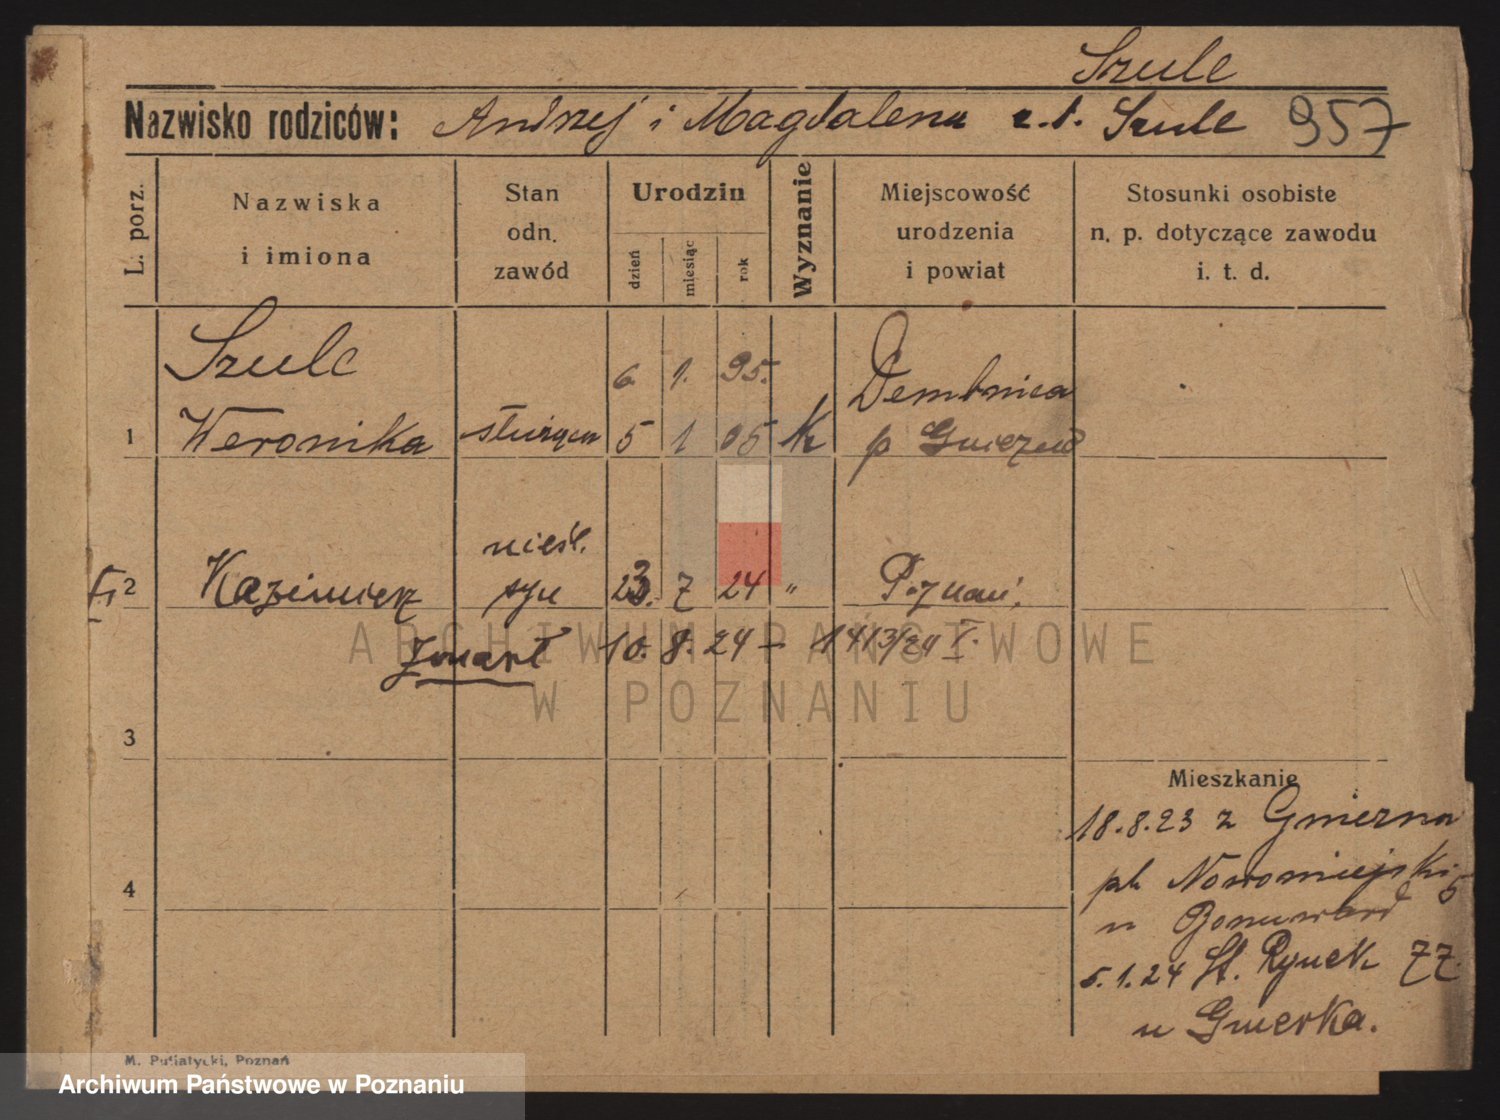 Szulc
Nazwisko rodziców: Andrzej i Magdalena z.d. Szulc 957
L. porz.
Nazwiska
i imiona
Stan
odn.
zawód
Urodzin
dzień
miesiąc
rok
Wyznanie
Miejscowość
urodzenia
i powiat
Stosunki osobiste
n. p. dotyczące zawodu
i. t. d.
Szulc 6 1. 95. Dembnica
1 Weronika służąca 5 1 05 k p Gniezno
nieśl.
2 Kazimierz syn 23. 7 24 " Poznań.
zmarł 10. 8. 24 - 1413/24 V.
ARCHIWUM PAŃSTWOWE
W POZNANIU
3
Mieszkanie
18.8.23 z Gniezna
pl. Nowomiejski 5
u
4
5.1.24 St. Rynek 77.
u
M. Putiatycki, Poznań
Archiwum Państwowe w Poznaniu